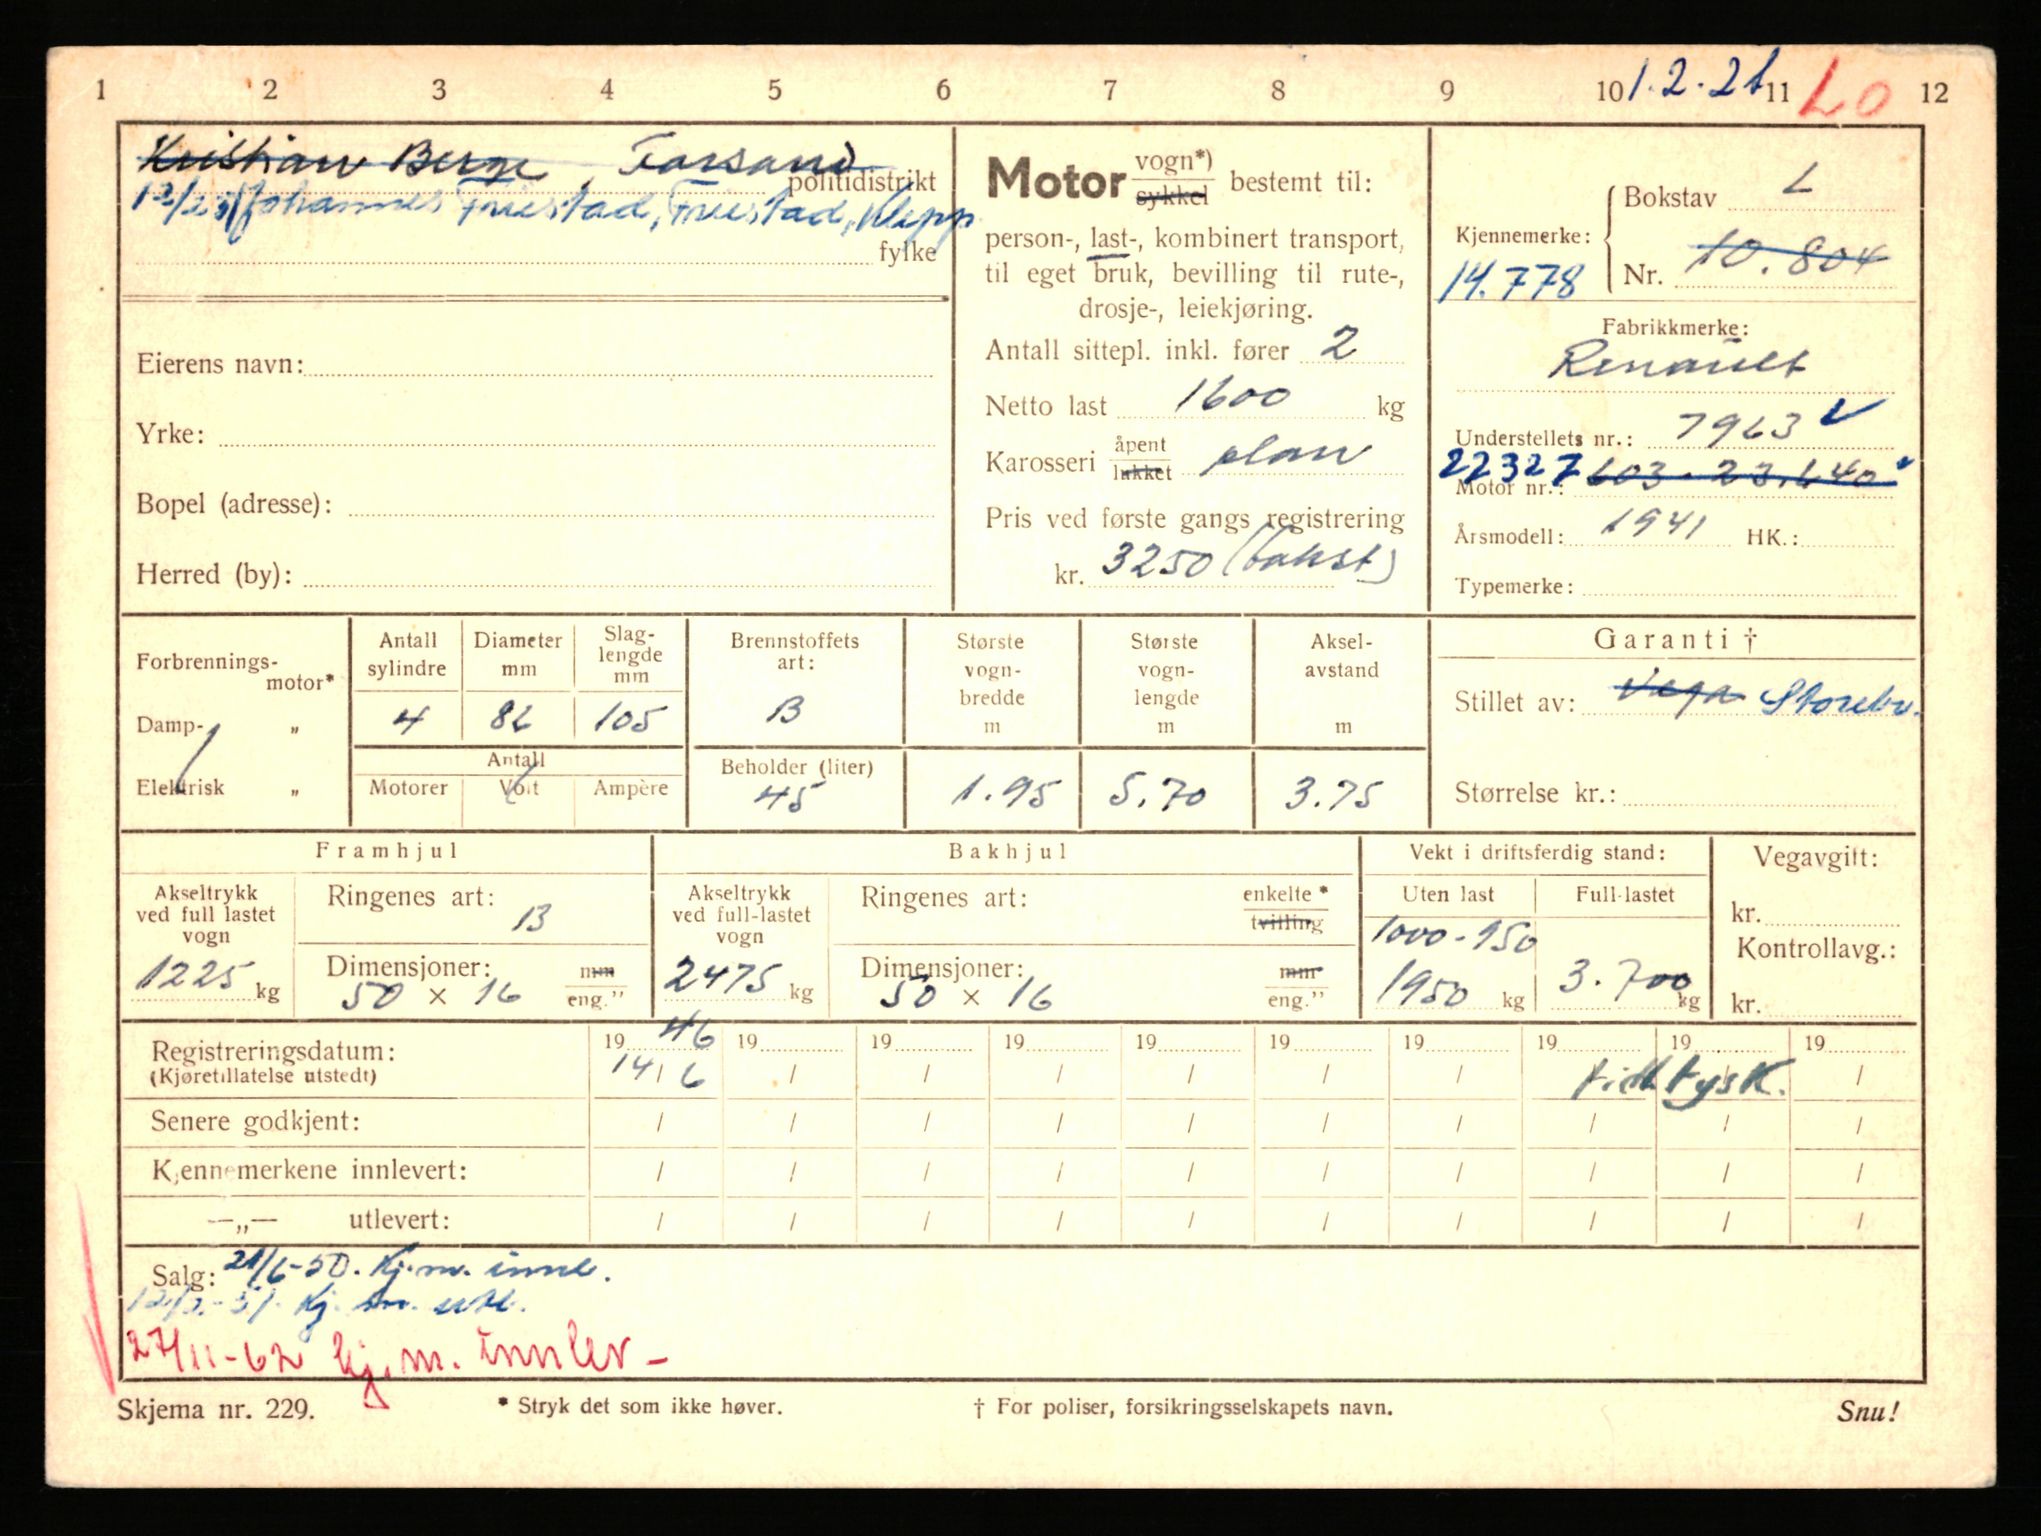 1 2 3 4 5 6 7 8 9 10 1.2.21 11 LO 12
Kristian Berge, Forsand
politidistrikt
Johannes Friestad, Friestad, Klepp
fylke
Eierens navn:
Yrke:
Bopel (adresse):
Herred (by):
Motor vogn*) sykkel bestemt til:
person-, last-, kombinert transport,
til eget bruk, bevilling til rute-,
drosje-, leiekjøring.
Antall sittepl. inkl. fører 2
Netto last 1600 kg
Karosseri åpent lukket plan
Pris ved første gangs registrering
kr. 3250 (takst)
Bokstav L
Kjennemerke:
14.778 Nr. 10.804
Fabrikkmerke:
Renault
Understellets nr.: 7963
22327 603.23.640
Motor nr.:
Årsmodell: 1941 HK.:
Typemerke:
Forbrennings-motor*
Damp- „
Elektrisk „
Antall sylindre 4
Diameter mm 86
Slag-lengde mm 105
Antall
Motorer Volt Ampère
Brennstoffets art: B
Beholder (liter) 45
Største vogn-bredde m 1.95
Største vogn-lengde m 5.70
Aksel-avstand m 3.75
Garanti †
Stillet av: Vega Storebr.
Størrelse kr.:
Framhjul
Akseltrykk ved full lastet vogn 1225 kg
Ringenes art: B
Dimensjoner: 50 × 16 mm eng."
Bakhjul
Akseltrykk ved full-lastet vogn 2475 kg
Ringenes art: enkelte* tvilling
Dimensjoner: 50 × 16 mm eng."
Vekt i driftsferdig stand:
Uten last 1000-950 1950 kg
Full-lastet 3.700 kg
Vegavgift:
kr.
Kontrollavg.:
kr.
19 46 19 19 19 19 19 19 19 19 19
Registreringsdatum: 14/6 / / / / / / tidl. tysk. /
(Kjøretillatelse utstedt)
Senere godkjent: / / / / / / / / / /
Kjennemerkene innlevert: / / / / / / / / / /
—„— utlevert: / / / / / / / / / /
Salg: 21/6-50. Kj.m. innl.
Kj. m. utl.
27/11-62 kj.m. innlev-
Skjema nr. 229.
* Stryk det som ikke høver.
† For poliser, forsikringsselskapets navn.
Snu!